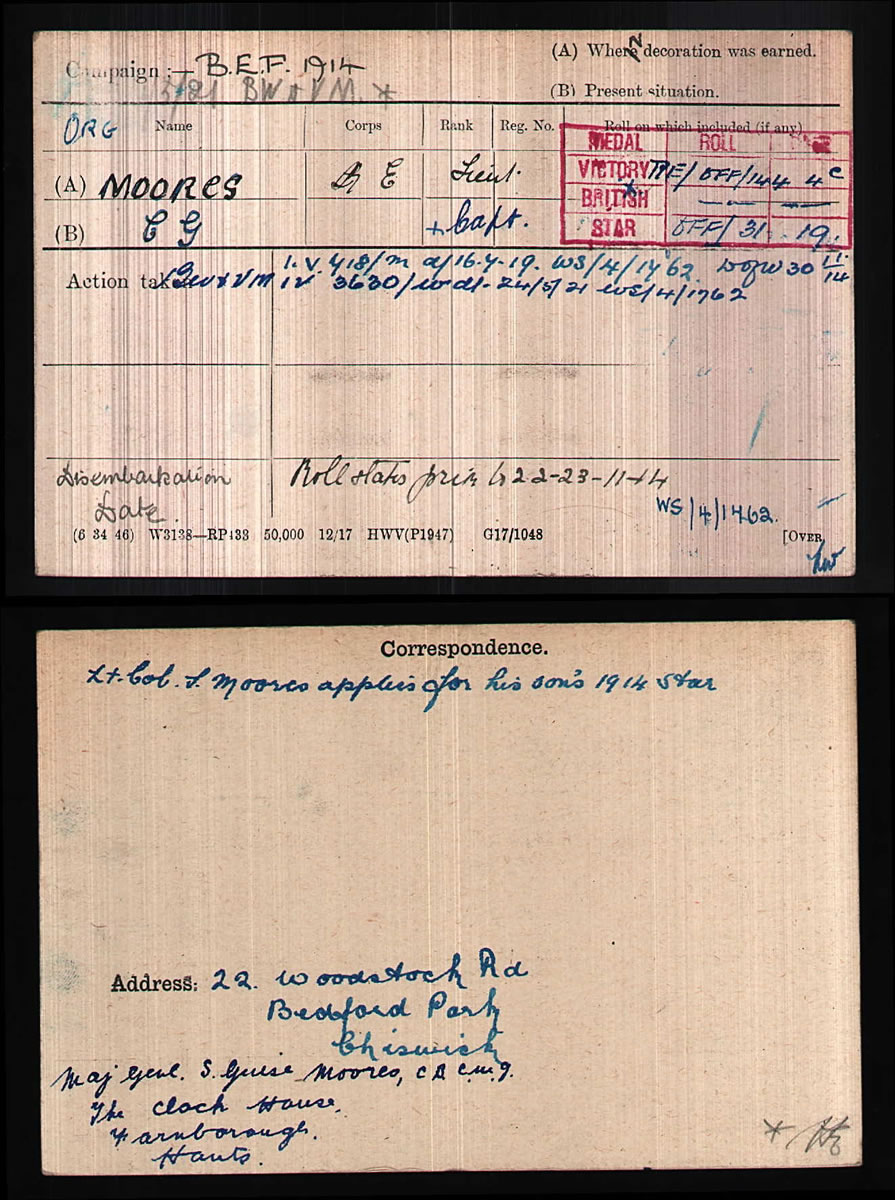 Campaign :— B.E.F. 1914
(A) Where decoration was earned.
5/21 BW & VM. *
(B) Present situation.
ORG Name Corps Rank Reg. No. Roll on which included (if any)
MEDAL ROLL
(A) MOORES R E Lieut. VICTORY RE/OFF/144 4c
BRITISH * —..— —
(B) C G + Capt. STAR OFF/31 19.
Action taken I.V. 418/m d/16-7-19. WS/4/1762. D of W 30 11/14
& VM IV 3630/ d/- 24/5/21 WS/4/1762
Disembarkation Roll states prior to 22-23-11-14
Date.
WS/4/1762.
(6 34 46) W3138—RP433 50,000 12/17 HWV(P1947) G17/1048 [OVER.
Correspondence.
Lt. Col. S. Moores applies for his son's 1914 Star
Address: 22. Woodstock Rd
Bedford Park
Chiswick
Maj Genl. S. Guise Moores, C B C.M.G.
The Clock House.
Farnborough.
Hants.
*